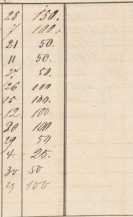 28 150.
7 100.
21 50.
11 50.
27 50.
26 100
15 100.
12 100
30 100
29 50
4. 25.
30 50
29 100